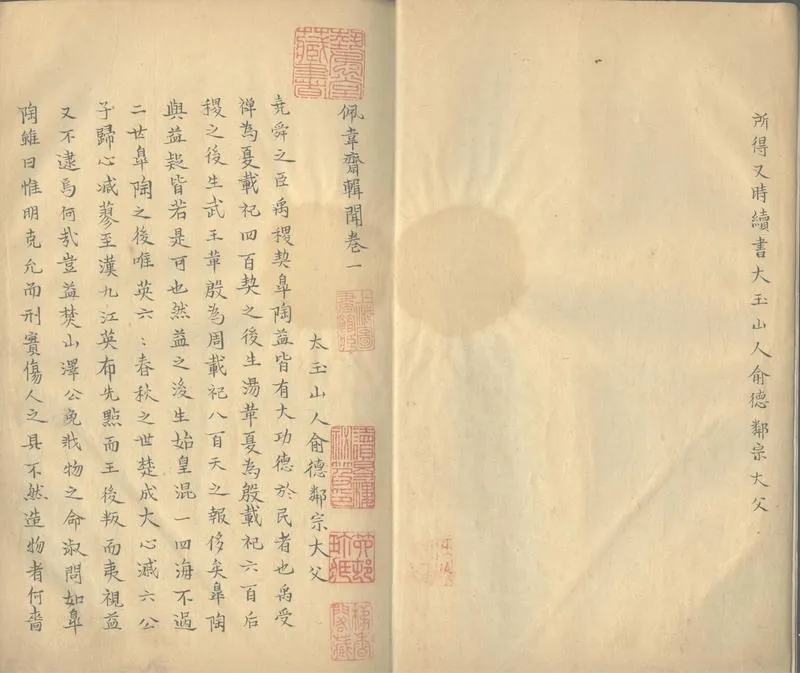 所得又時續書大玉山人俞德鄰宗大父
佩韋齋輯聞卷一
太玉山人俞德鄰宗大父
堯舜之臣禹稷契皐陶益皆有大功德於民者也禹受
禅為夏載祀四百契之後生湯革夏為殷載祀六百后
稷之後生武王革殷為周載祀八百天之報侈矣皐陶
與益疑皆若是可也然益之後生始皇混一四海不過
二世皐陶之後唯英六：春秋之世楚成大心滅六公
子歸心滅蓼至漢九江英布先黥而王後叛而夷視益
又不逮焉何哉豈益焚山澤公免戕物之命淑問如皐
陶雖曰惟明克允而刑實傷人之具不然造物者何嗇